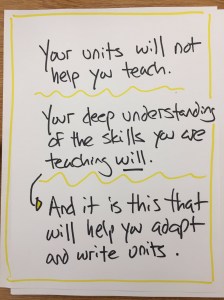 Your units will not
help you teach.
Your deep understanding
of the skills you are
teaching will.
And it is this that
will help you adapt
and write units.